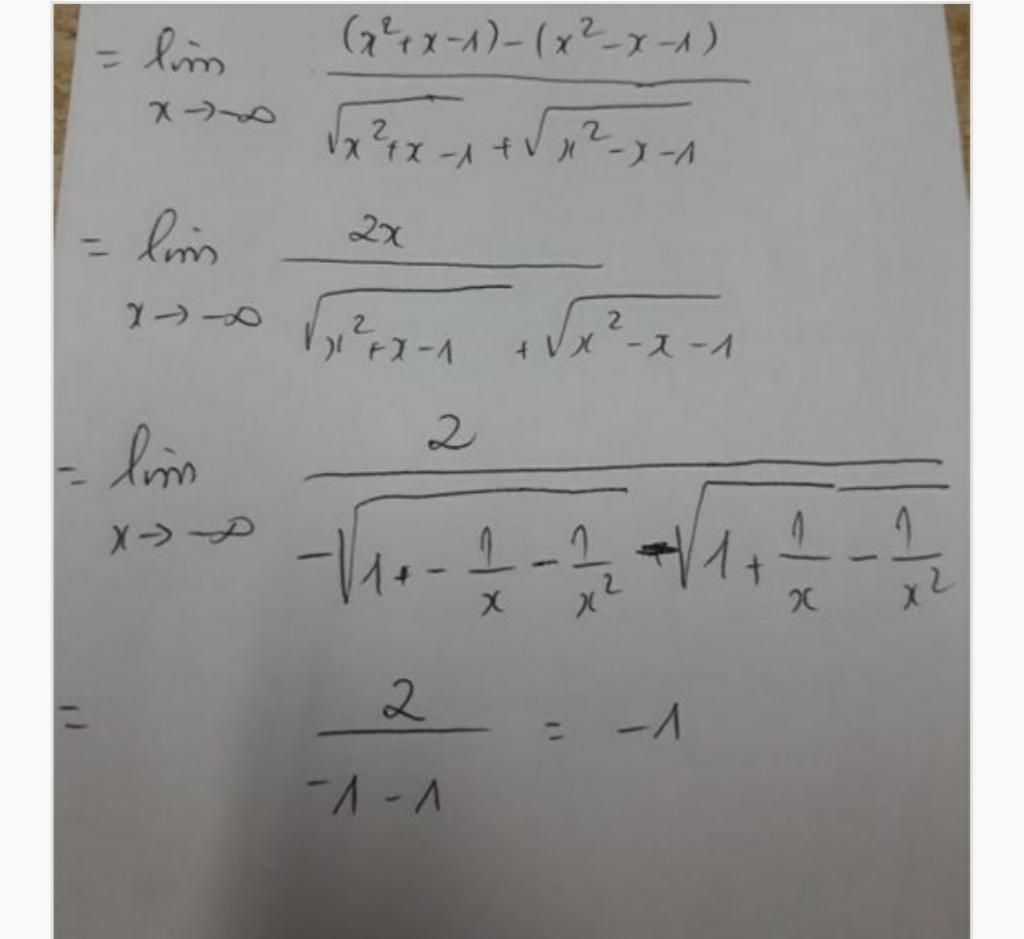 = lim x→-∞ ((x²+x-1)-(x²-x-1))/(√(x²+x-1) + √(x²-x-1))
= lim x→-∞ 2x/(√(x²+x-1) + √(x²-x-1))
= lim x→-∞ 2/(-√(1+-1/x-1/x²) -√(1+1/x-1/x²))
= 2/(-1-1) = -1